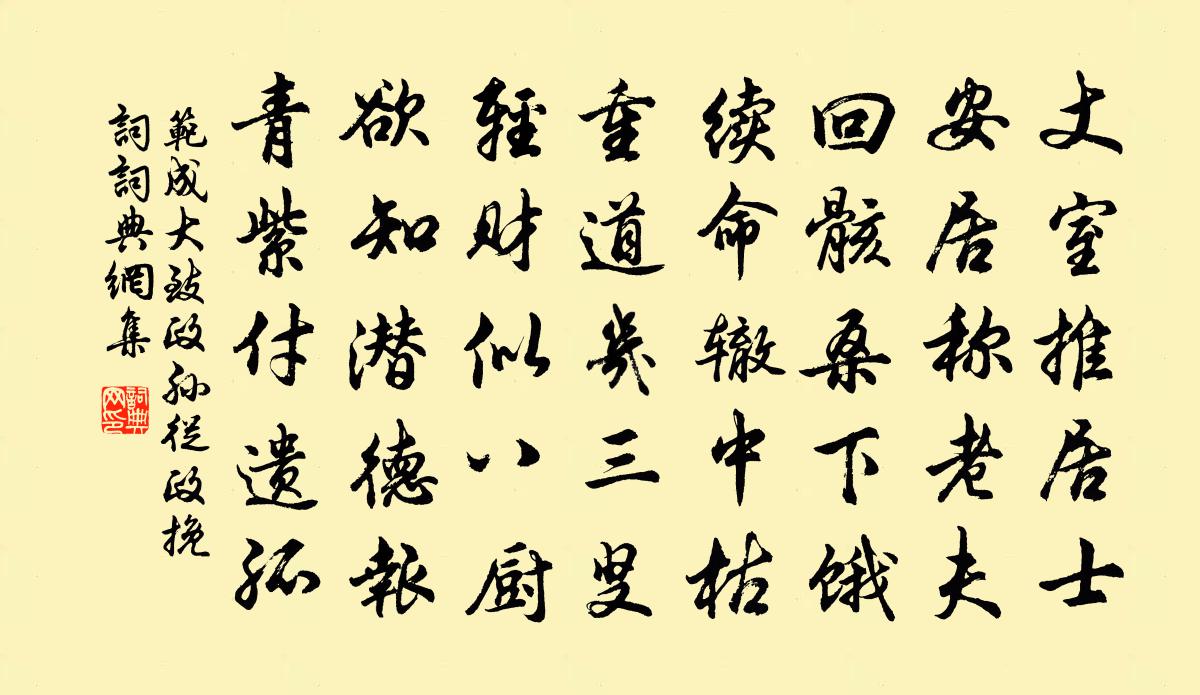 丈室推居士
安居称老夫
回骸桑下饿
续命辙中枯
重道几三叟
輕财似八厨
欲知潜德報
青紫付遗孤
範成大致政孙從政挽
詞詞典網集
詞典网印